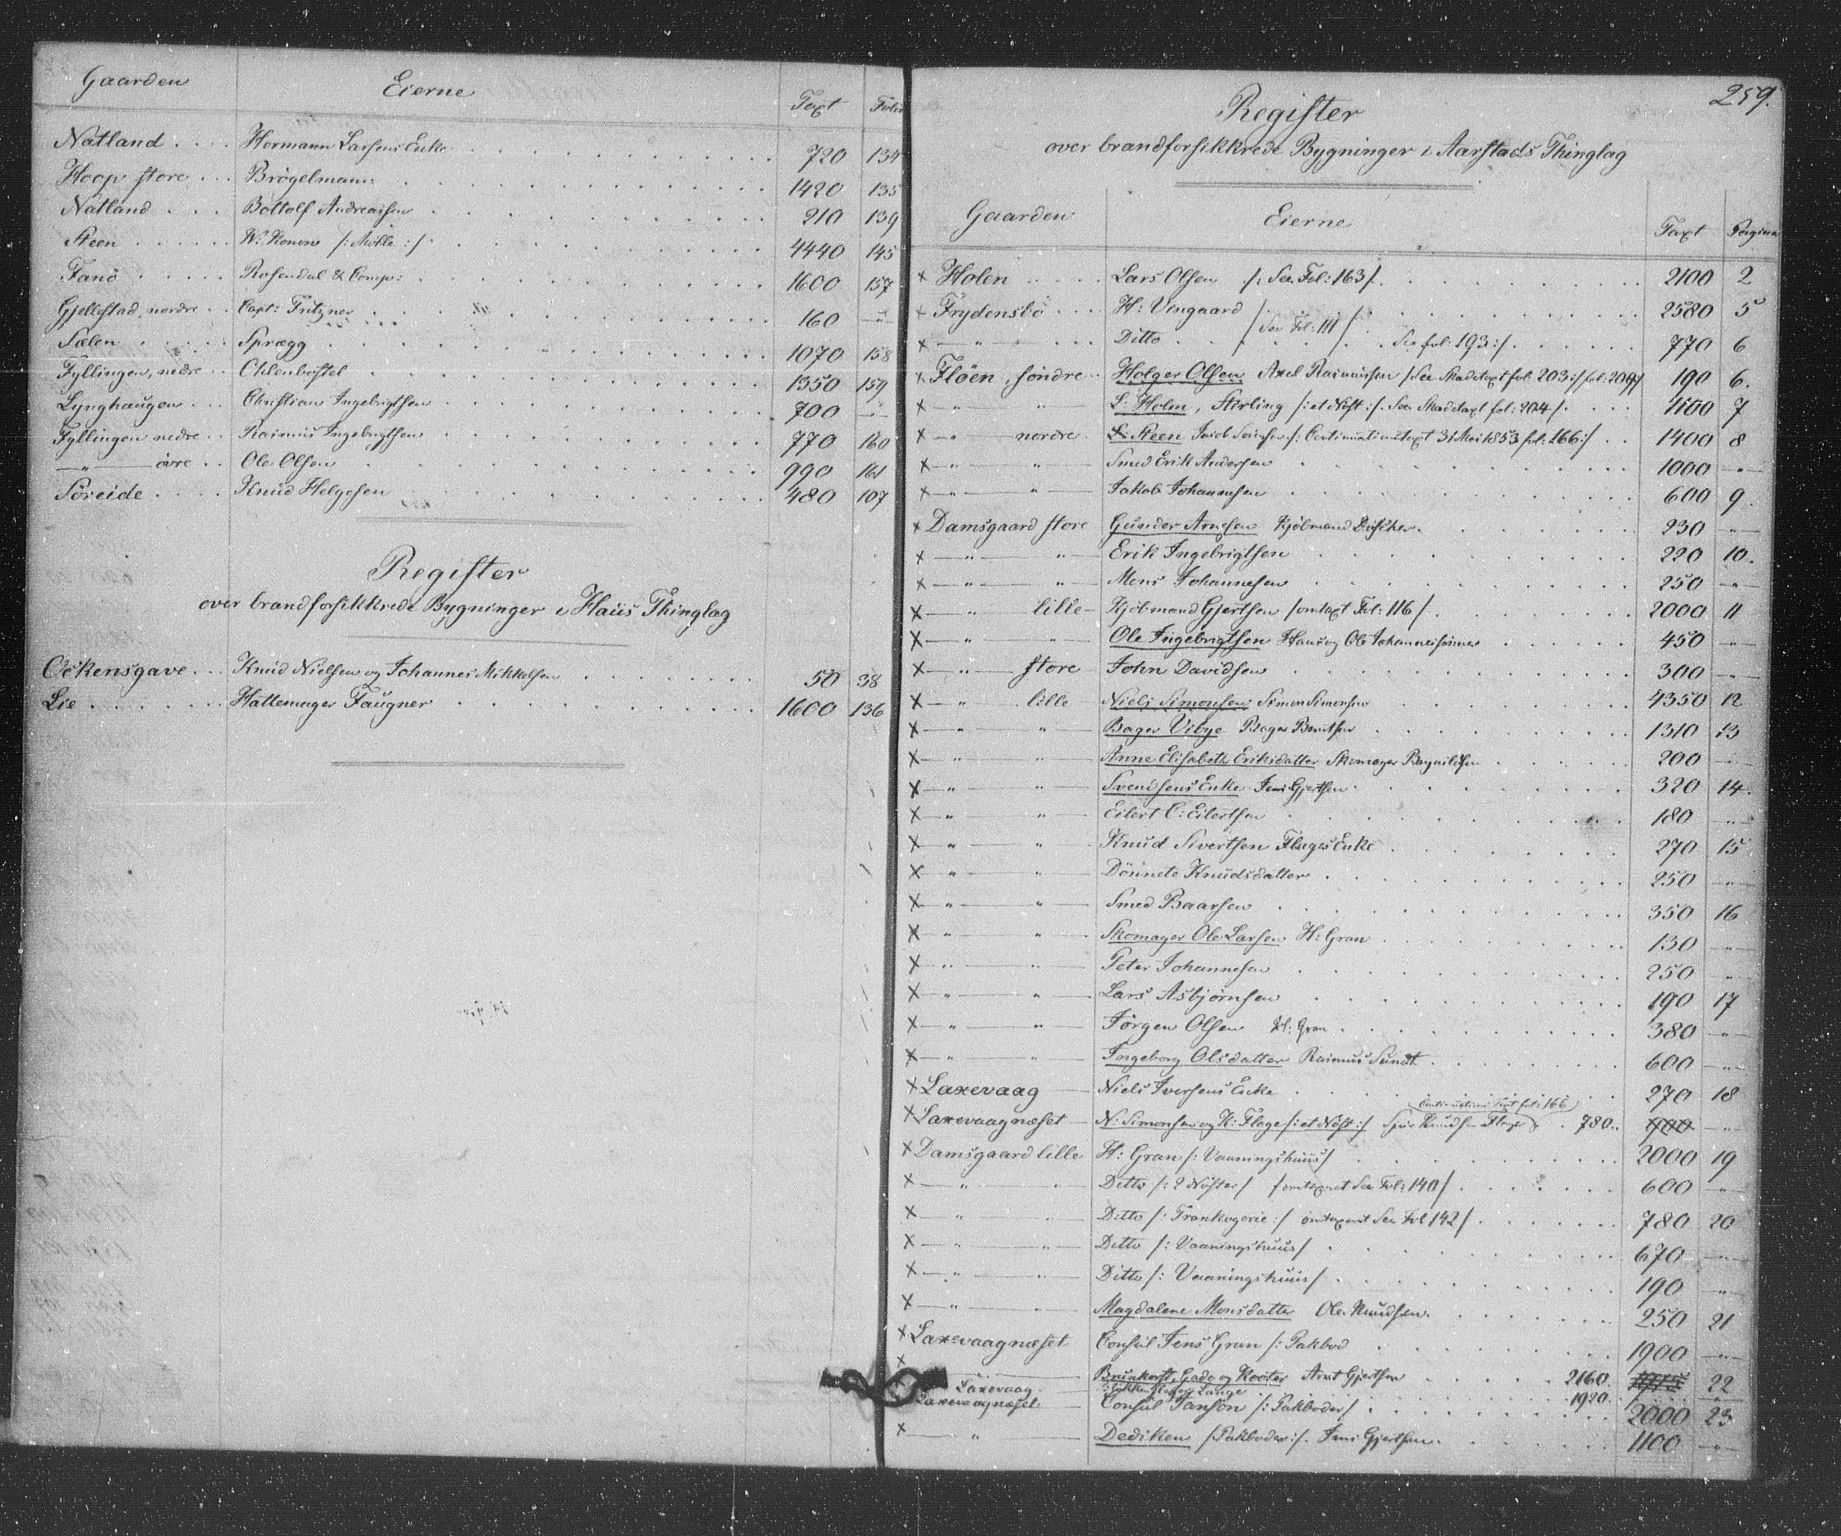 Gaarden Eierne Taxt Folio
Natland . . . Hermann Larsens Enke 720 134
Hoop store . . Brøgelmann 1420 135
Natland . . . Bottolf Andreassen 210 139
Steen . . . . W: Konow /: Mølle :/ 4440 145
Fanö . . . . Rosendal & Comp: 1600 157
Gjellestad, nordre . . Capt: Fritzner 160 —"—
Sælen . . . . Sprægg 1070 158
Fyllingen, nedre . . Ohlenbostel 1350 159
Lynghaugen . . Christian Ingebrigtsen 700 —"—
Fyllingen nedre . . Rasmus Ingebrigtsen 770 160
—"— övre . . Ole Olsen 990 161
Söreide . . . . Knüd Helgesen 480 107
Register
over brandforsikkrede Bygninger i Haüs Thinglag
Knüd Nielsen og Johannes Mikkelsen 50 38
Lie . . . . Hattemager Faugner 1600 136
259.
Register
over brandforsikkrede Bygninger i Aarstads Thinglag
Gaarden Eierne Taxt Pagina
x Holen . . . Lars Olsen /: See Fol: 163 /. 2100 2
x Frydensbö . . . H: Vingaard /: See Fol: 111 / 2580 5
x —"— . . . Ditto . . . See fol: 193 :/ 770 6
x Flöen, söndre . . Holger Olsen Axel Rasmussen / See Skadetaxt fol. 203 :/ fol: 209/ 190 6.
x —"— " L: Holm, Stirling /: et Nöst :/. See Skadetaxt fol: 204 /. 1100 7
x —"— nordre . L: Steen Jacob Sörensen /: Continuationstaxt 31 Mai 1853 fol: 166 :/ 1400 8
x —"— " Smed Erik Andersen 1000 —"—
x —"— " Jakob Johannesen 600 9.
x Damsgaard store Gunder Arnesen Kjöbmand Dischen 230 —"—
x —"— " Erik Ingebrigtsen 220 10.
x —"— " Mons Johannesen 250 —"—
x —"— lille Kjöbmand Gjertsen / omtaxt Fol: 116 / 2000 11
x —"— " Ole Ingebrigtsen Hans og Ole Johannessönner 450 —"—
x —"— store John Davidsen 300 —"—
x —"— lille Niels Simonsen Simon Simonsen 4350 12
x —"— " Bager Vibye Bager Berntsen 1310 13
x —"— " Anne Elisabeth Eriksdatter Skomager Bagnildsen 200 —"—
x —"— " Svendsens Enke Jens Gjertsen 320 14.
x —"— " Eilert C: Eilertsen 180 —"—
x —"— " Knud Sivertsen Flages Enke 270 15
x —"— " Dönnete Knudsdatter 250 —"—
x —"— " Smed Baarsen 350 16
x —"— " Skomager Ole Larsen H: Gran 130 —"—
x —"— " Peter Johannesen 250 —"—
x —"— " Lars Asbjörnsen 190 17
x —"— " Jörgen Olsen H: Gran 380 —"—
x —"— " Ingeborg Olsdatter Rasmus Sundt 600 —"—
x Laxevaag Niels Iversens Enke 270 18
Continuations Taxt fol: 166
x Laxevaagnæset N: Simonsen og K: Flage /: et Nöst :/ Knudsen Flage 780. 900 —"—
x Damsgaard lille H: Gran /: Vaaningshuus / 2000 19
x —"— " Ditto /: 2 Nöster / / omtaxeret See Fol: 140 / 600 —"—
x —"— " Ditto /: Trankogerie :/ omtaxeret See Fol 142 / 780 20
x —"— " Ditto /: Vaaningshuus / 670 —"—
x —"— " Ditto /: Vaaningshuus / 190 —"—
x —"— " Magdalene Monsdatter Ole Knudsen. 250 21
x Laxevaagnæset Consul Jens Gran /: Pakbod 1900 —"—
x Brunkorst, Gade og Kooter Arnt Gjertsen 2160. 1915 22
Laxevaag Lange 1920.
Laxevaagnæset Consul Janson /: Pakboder / 2000 23
x " Dediken / Pakboder :/. Jens Gjertsen. 1100 —"—